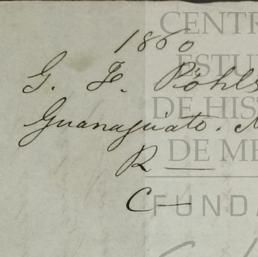 1860
G. F. Pöhls
Guanajuato. M
R —
C —
CENTR
ESTU
DE HIST
DE MÉ
FUNDA